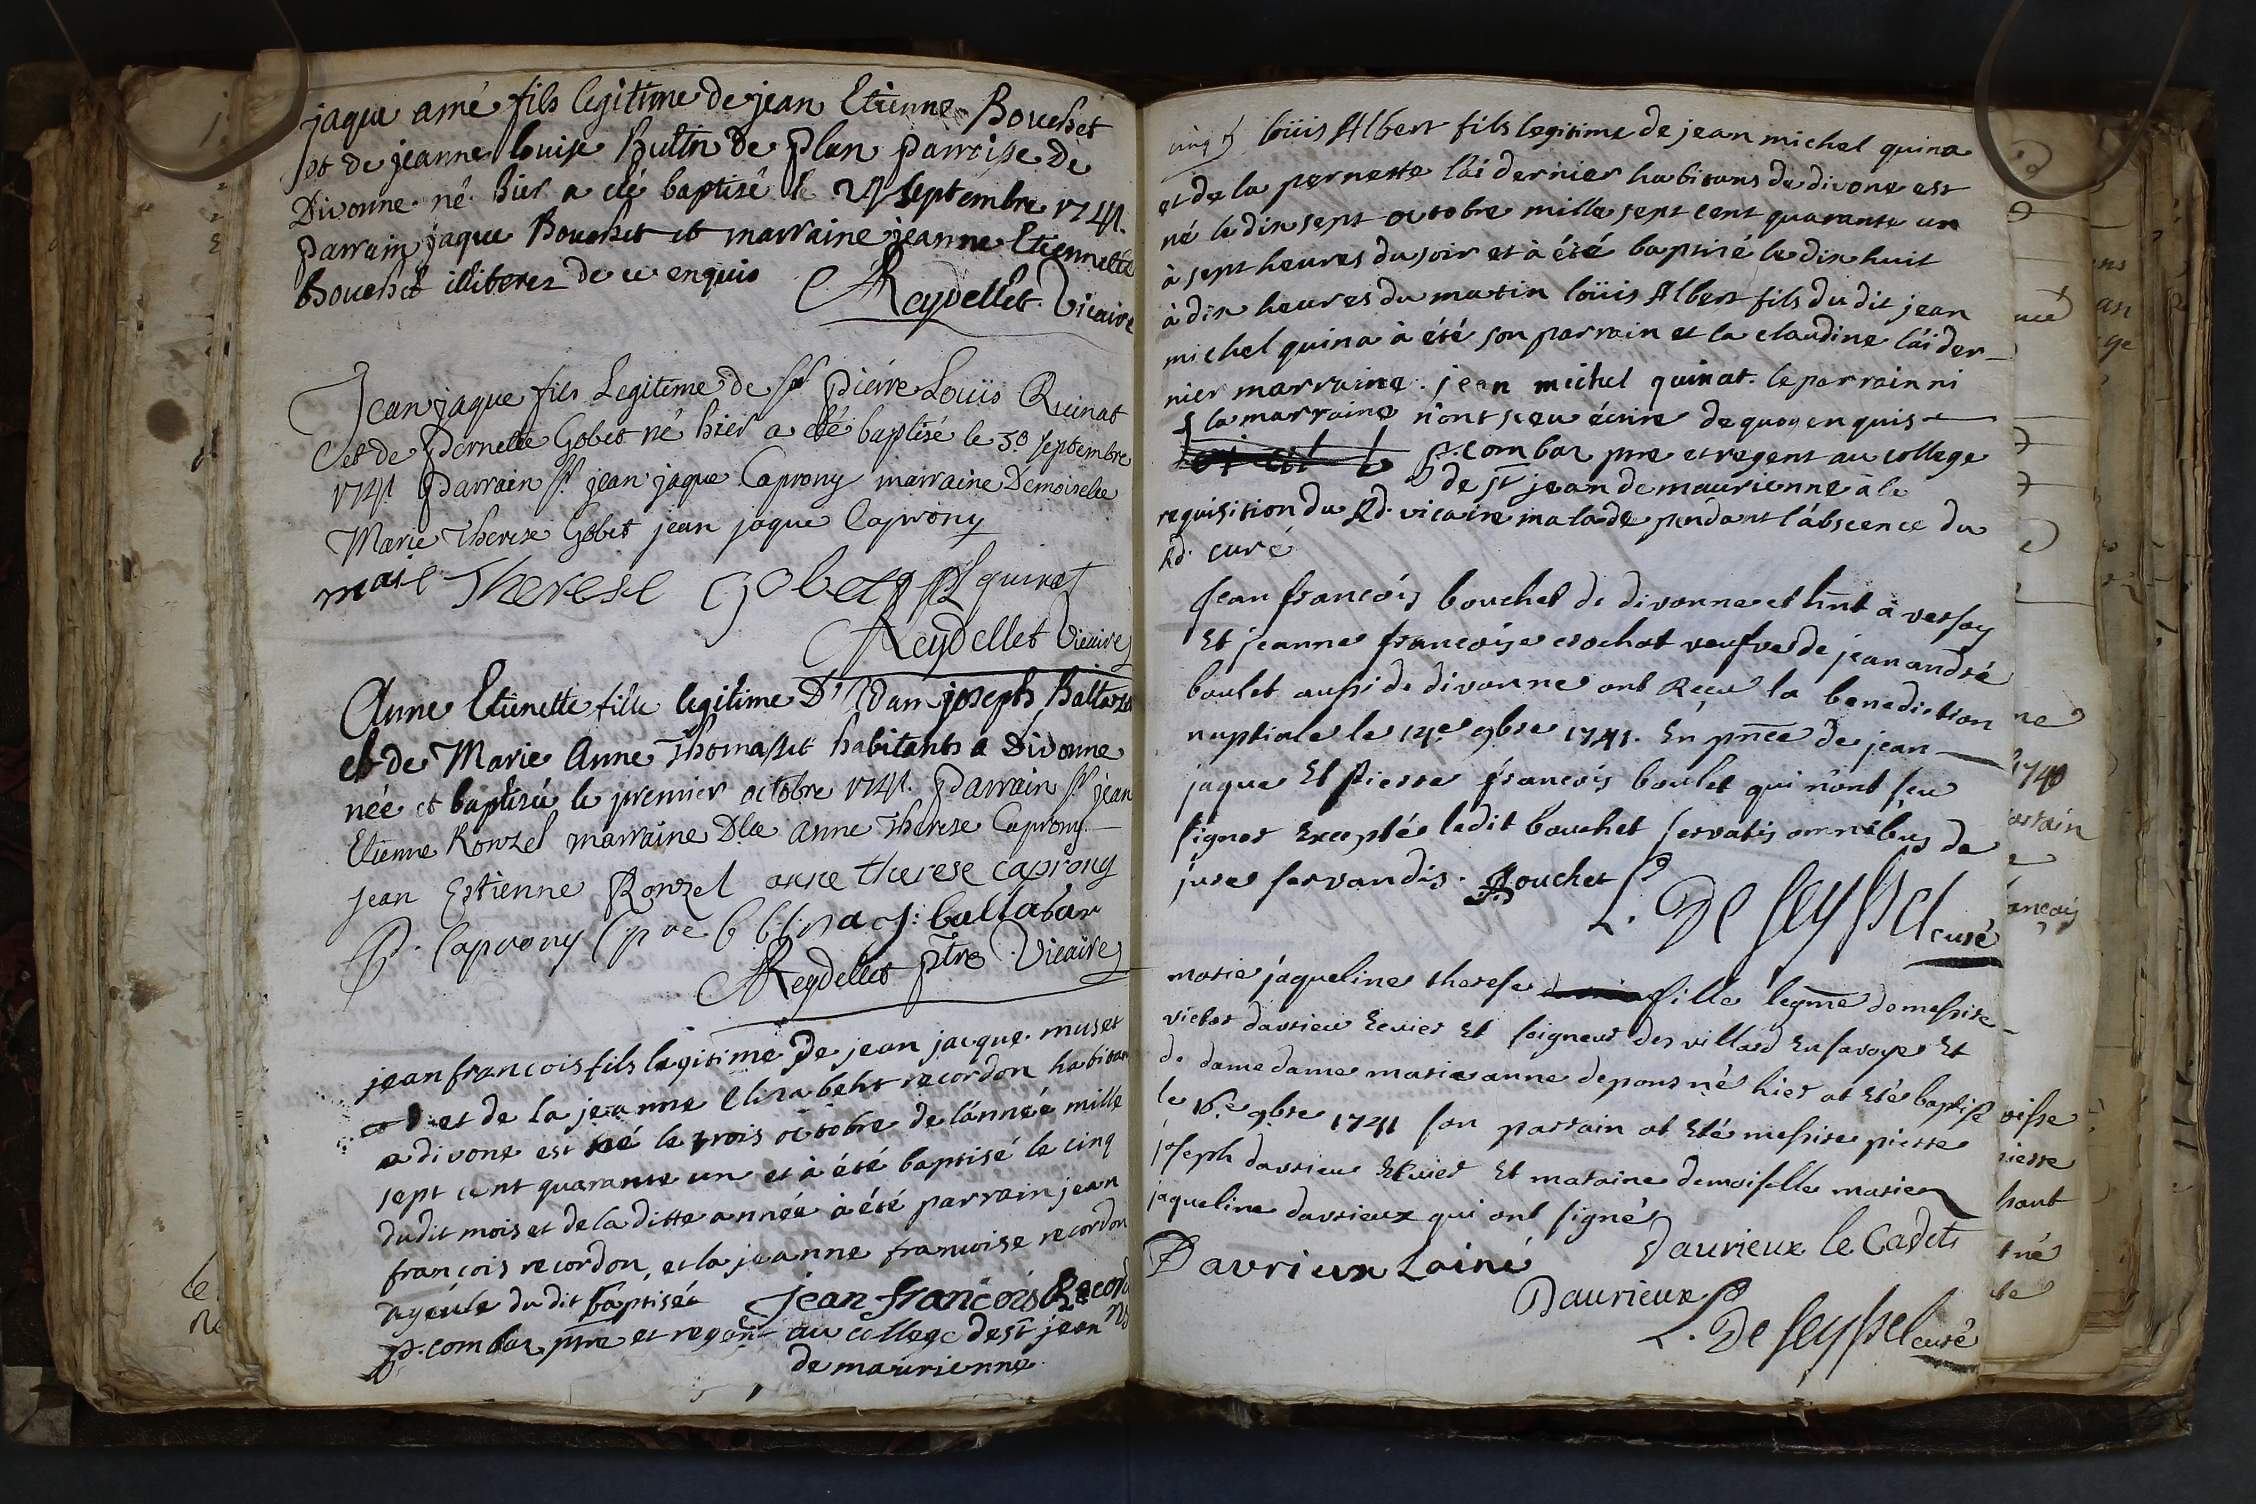 jaque amé fils legitime de jean Etienne Bouchet
et de jeanne louise Hutin de Plan parroise de
Divonne né hier a eté baptisé le 24 septembre 1741.
Parrain jaque Bouchet et marraine jeanne Etiennette
Bouchet illiterez de ce enquis
Reydellet Vicaire
Jean jaque fils Legitime de Sr pierre Loüis Quinat
et de Pernette Gobet né hier a eté baptisé le 30 septembre
1741 Parrain Sr jean jaque Caprony marraine Demoiselle
Marie Therese Gobet jean jaque Caprony
marie Therese Gobet PL quinat
Reydellet Vicaire
Anne Etienette fille legitime D'Adam joseph
et de Marie Anne Thomasset habitants a Divonne
née et baptisée le premier octobre 1741. Parrain Sr jean
Etienne Rouzel marraine Dlle anne Therese Caprony
jean Estienne Rouzel anne therese caprony
Caprony
Reydellet ptre Vicaire
jean francois fils legitime de jean jacque muset
et de la jeanne Elizabeht recordon habitan
a divone est né le trois octobre de l'année mille
sept cent quarante un et à été baptisé le cinq
dudit mois et de la ditte année à été parrain jean
françois recordon, et la jeanne françoise recordon
ayeule du dit baptisée jean francois Recordon
p. combaz ptre et regent au college de st jean
de maurienne
loüis Albert fils legitime de jean michel quina
et de la pernette lai dernier habitans de divone est
né le dix sept octobre mille sept cent quarante un
à sept heures du soir et à été baptisé le dix huit
à dix heures du matin loüis Albert fils du dit jean
michel quina à été son parrain et la claudine lai der-
nier marraine. jean michel quinat. le parrain ni
la marraine n'ont sceu écrire de quoy enquis
p. combaz ptre et regent au college
de st jean de maurienne à la
requisition du Rd. vicaire malade pendant l'abscence du
Rd. curé
Jean francóis bouchet de divonne et hnt à versoy
Et jeanne francoise crochat veufve de jean andré
boulet aussi de divonne ont Receu la benediction
nuptiale le 14e 9bre 1741. En pnce de jean
jaque Et Pierre francóis boulet qui nont seu
signer Excepté ledit bouchet servatis omnibus de
jure servandis. Bouchet
L. De Seyssel curé
marie jaqueline therese fille legme de messire
victor davrieu Ecuier Et seigneur des villard En savoye Et
de dame dame marie anne depons né hier at Eté baptise
le 16e 9bre 1741 son parrain at Eté messire pierre
joseph davrieu Ecuier Et maraine demoiselle marie
jaqueline davrieux qui ont signés
Davrieux Lainé Daurieux le Cadet
Daurieux
L. De Seyssel curé